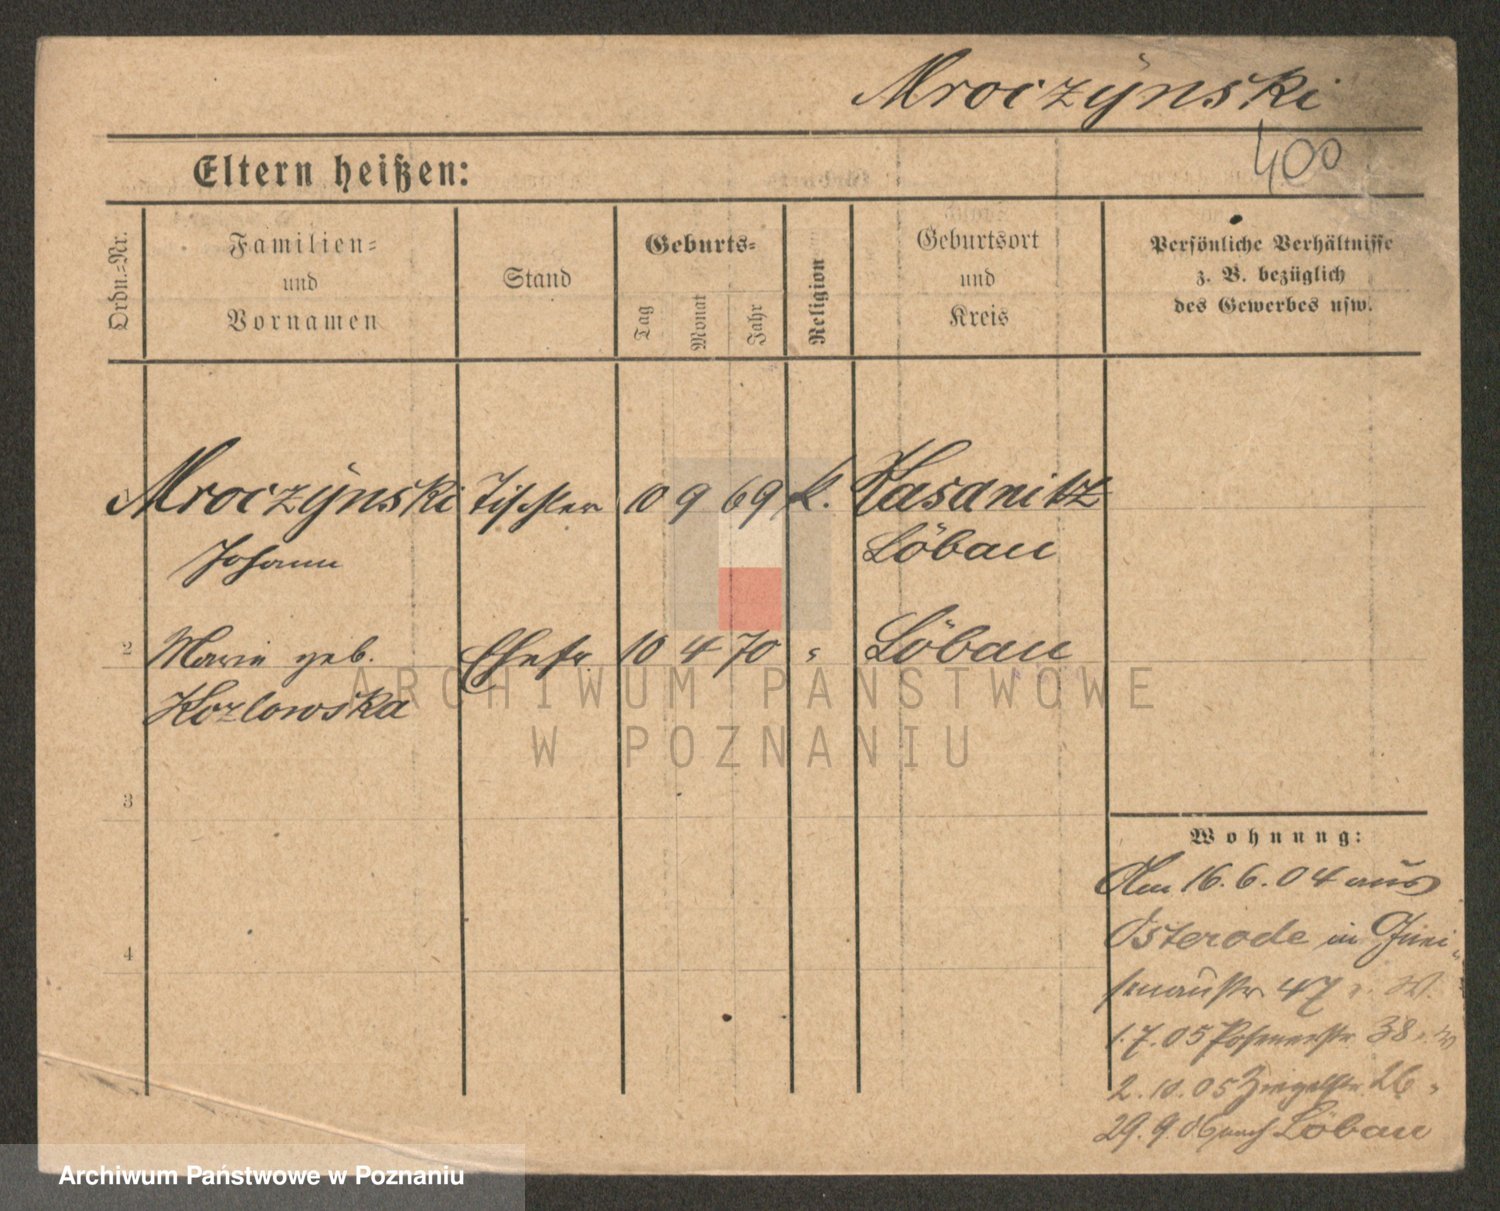 Mroczÿnski
400
Eltern heißen:
Ordn.=Nr.
Familien=
und
Vornamen
Stand
Geburts=
Tag
Monat
Jahr
Religion
Geburtsort
und
Kreis
Persönliche Verhältnisse
z. B. bezüglich
des Gewerbes usw.
Mroczÿnski Tischler 10 9 69 k. Kasanitz
Johann Löbau
2 Marie geb. Ehefr. 10 4 70 " Löbau
Kozlowska
3
4
Wohnung:
Am 16.6.04 aus
Osterode in Gnei-
senaustr. 47 W.
1.7.05 Posenerstr. 38
2.10.05 Ziegelstr. 26
29.9.06 nach Löbau
ARCHIWUM PAŃSTWOWE
W POZNANIU
Archiwum Państwowe w Poznaniu